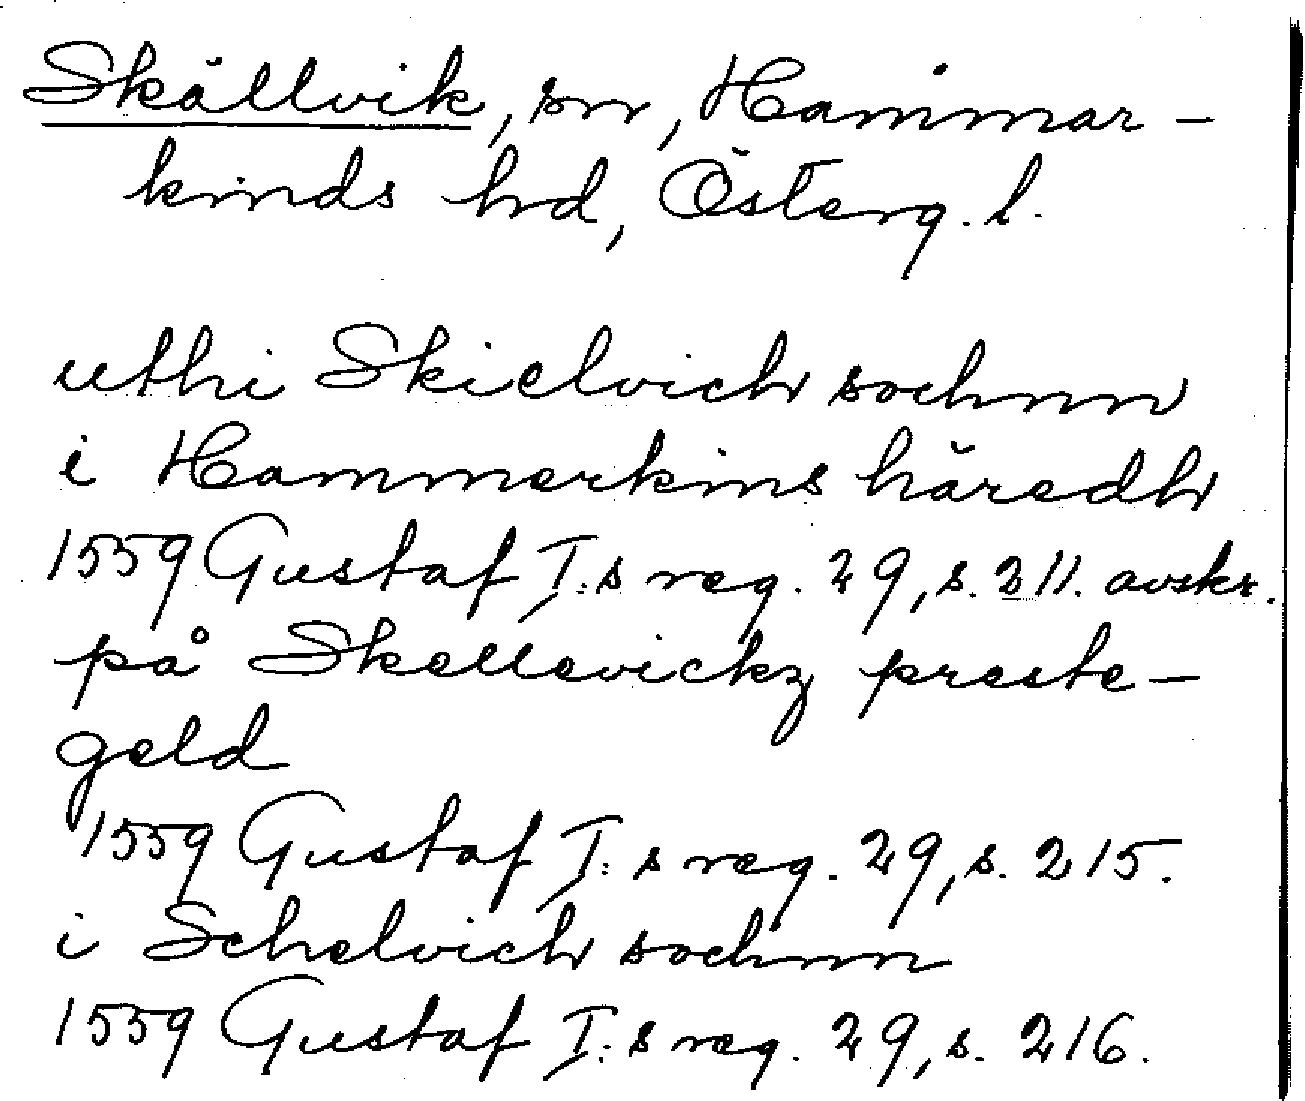 Skällvik, sn, Hammar-
kinds hrd, Österg. l.
uthi Skielvich sochnn
i Hammerkins häredh
1559 Gustaf I:s reg. 29, s. 211. avskr.
på Skellevickz preste-
geld
1559 Gustaf I:s reg. 29, s. 215.
i Schelvich sochnn
1559 Gustaf I:s reg. 29, s. 216.